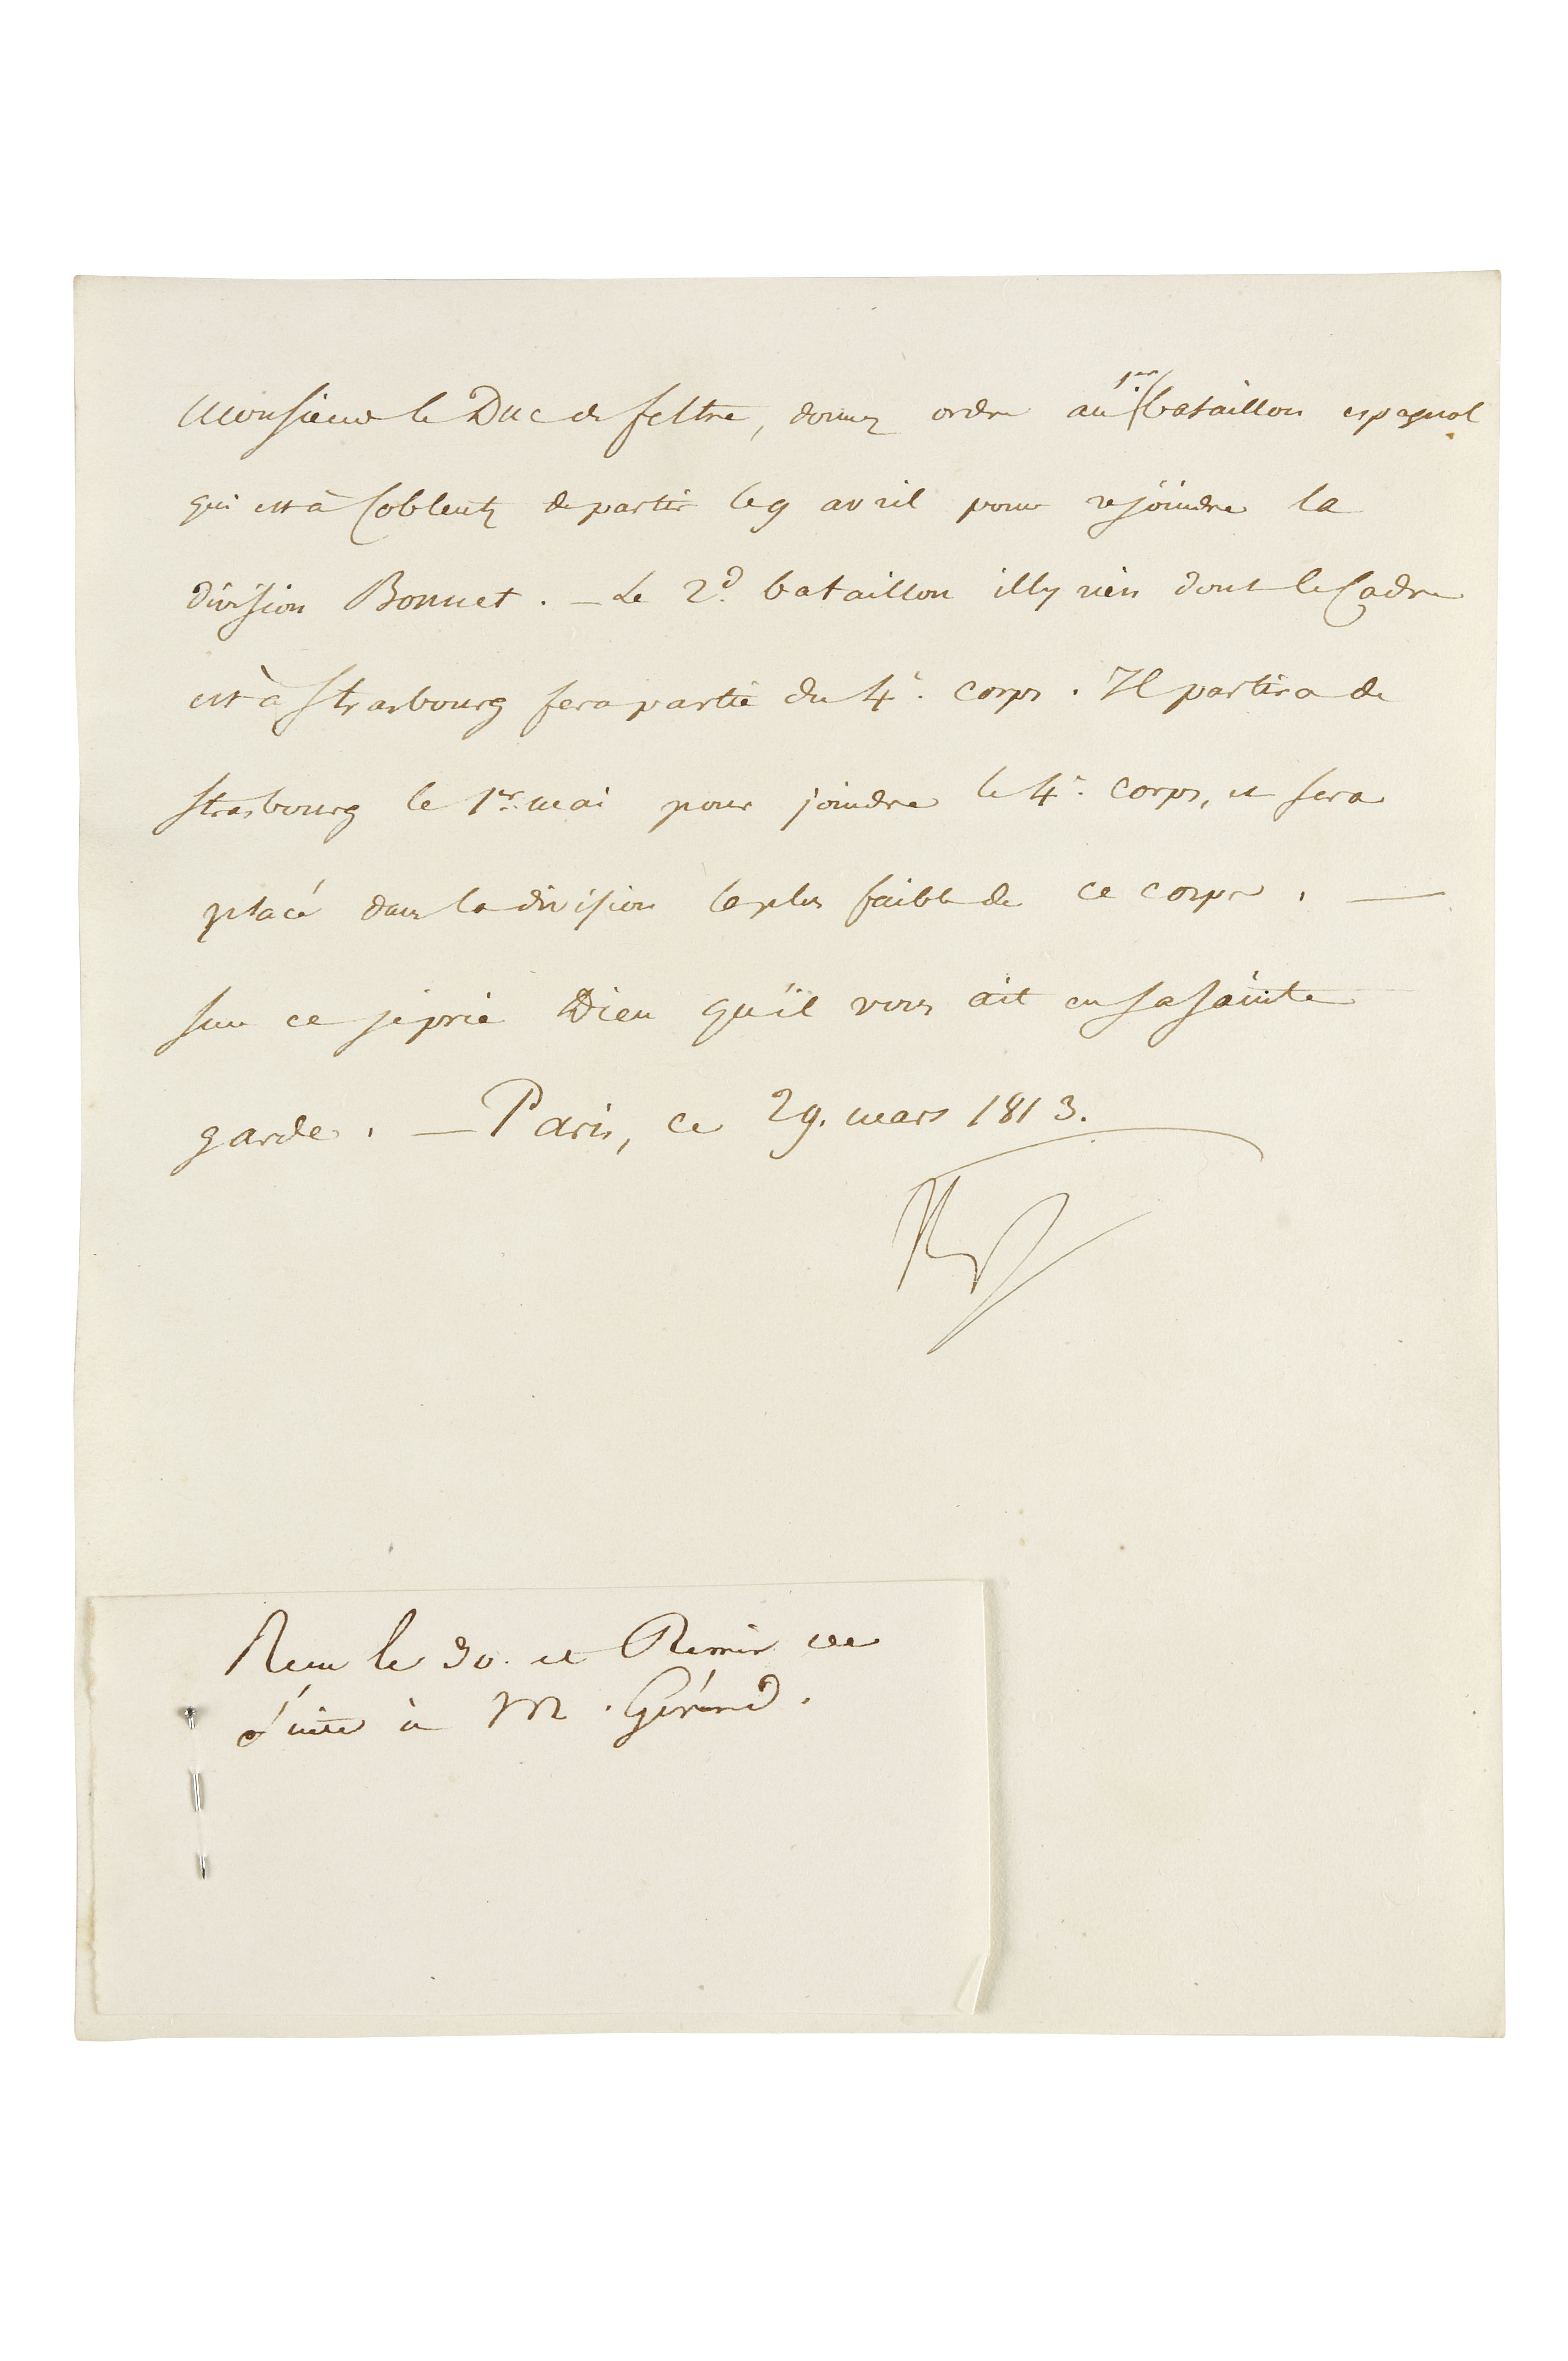 Monsieur le Duc de feltre, donnez ordre au 1er bataillon espagnol
qui est à Coblentz de partir le 9 avril pour rejoindre la
division Bonnet. — Le 2d. bataillon illyrien dont le Cadre
est à Strasbourg fera partie du 4e. corps. Il partira de
Strasbourg le 1er. mai pour joindre le 4e. corps, et sera
placé dans la division la plus faible de ce corps. —
Sur ce je prie Dieu qu'il vous ait en sa sainte
garde. — Paris, ce 29. mars 1813.
Np
Recu le 30. et Remis de
suite à M. Gérard.